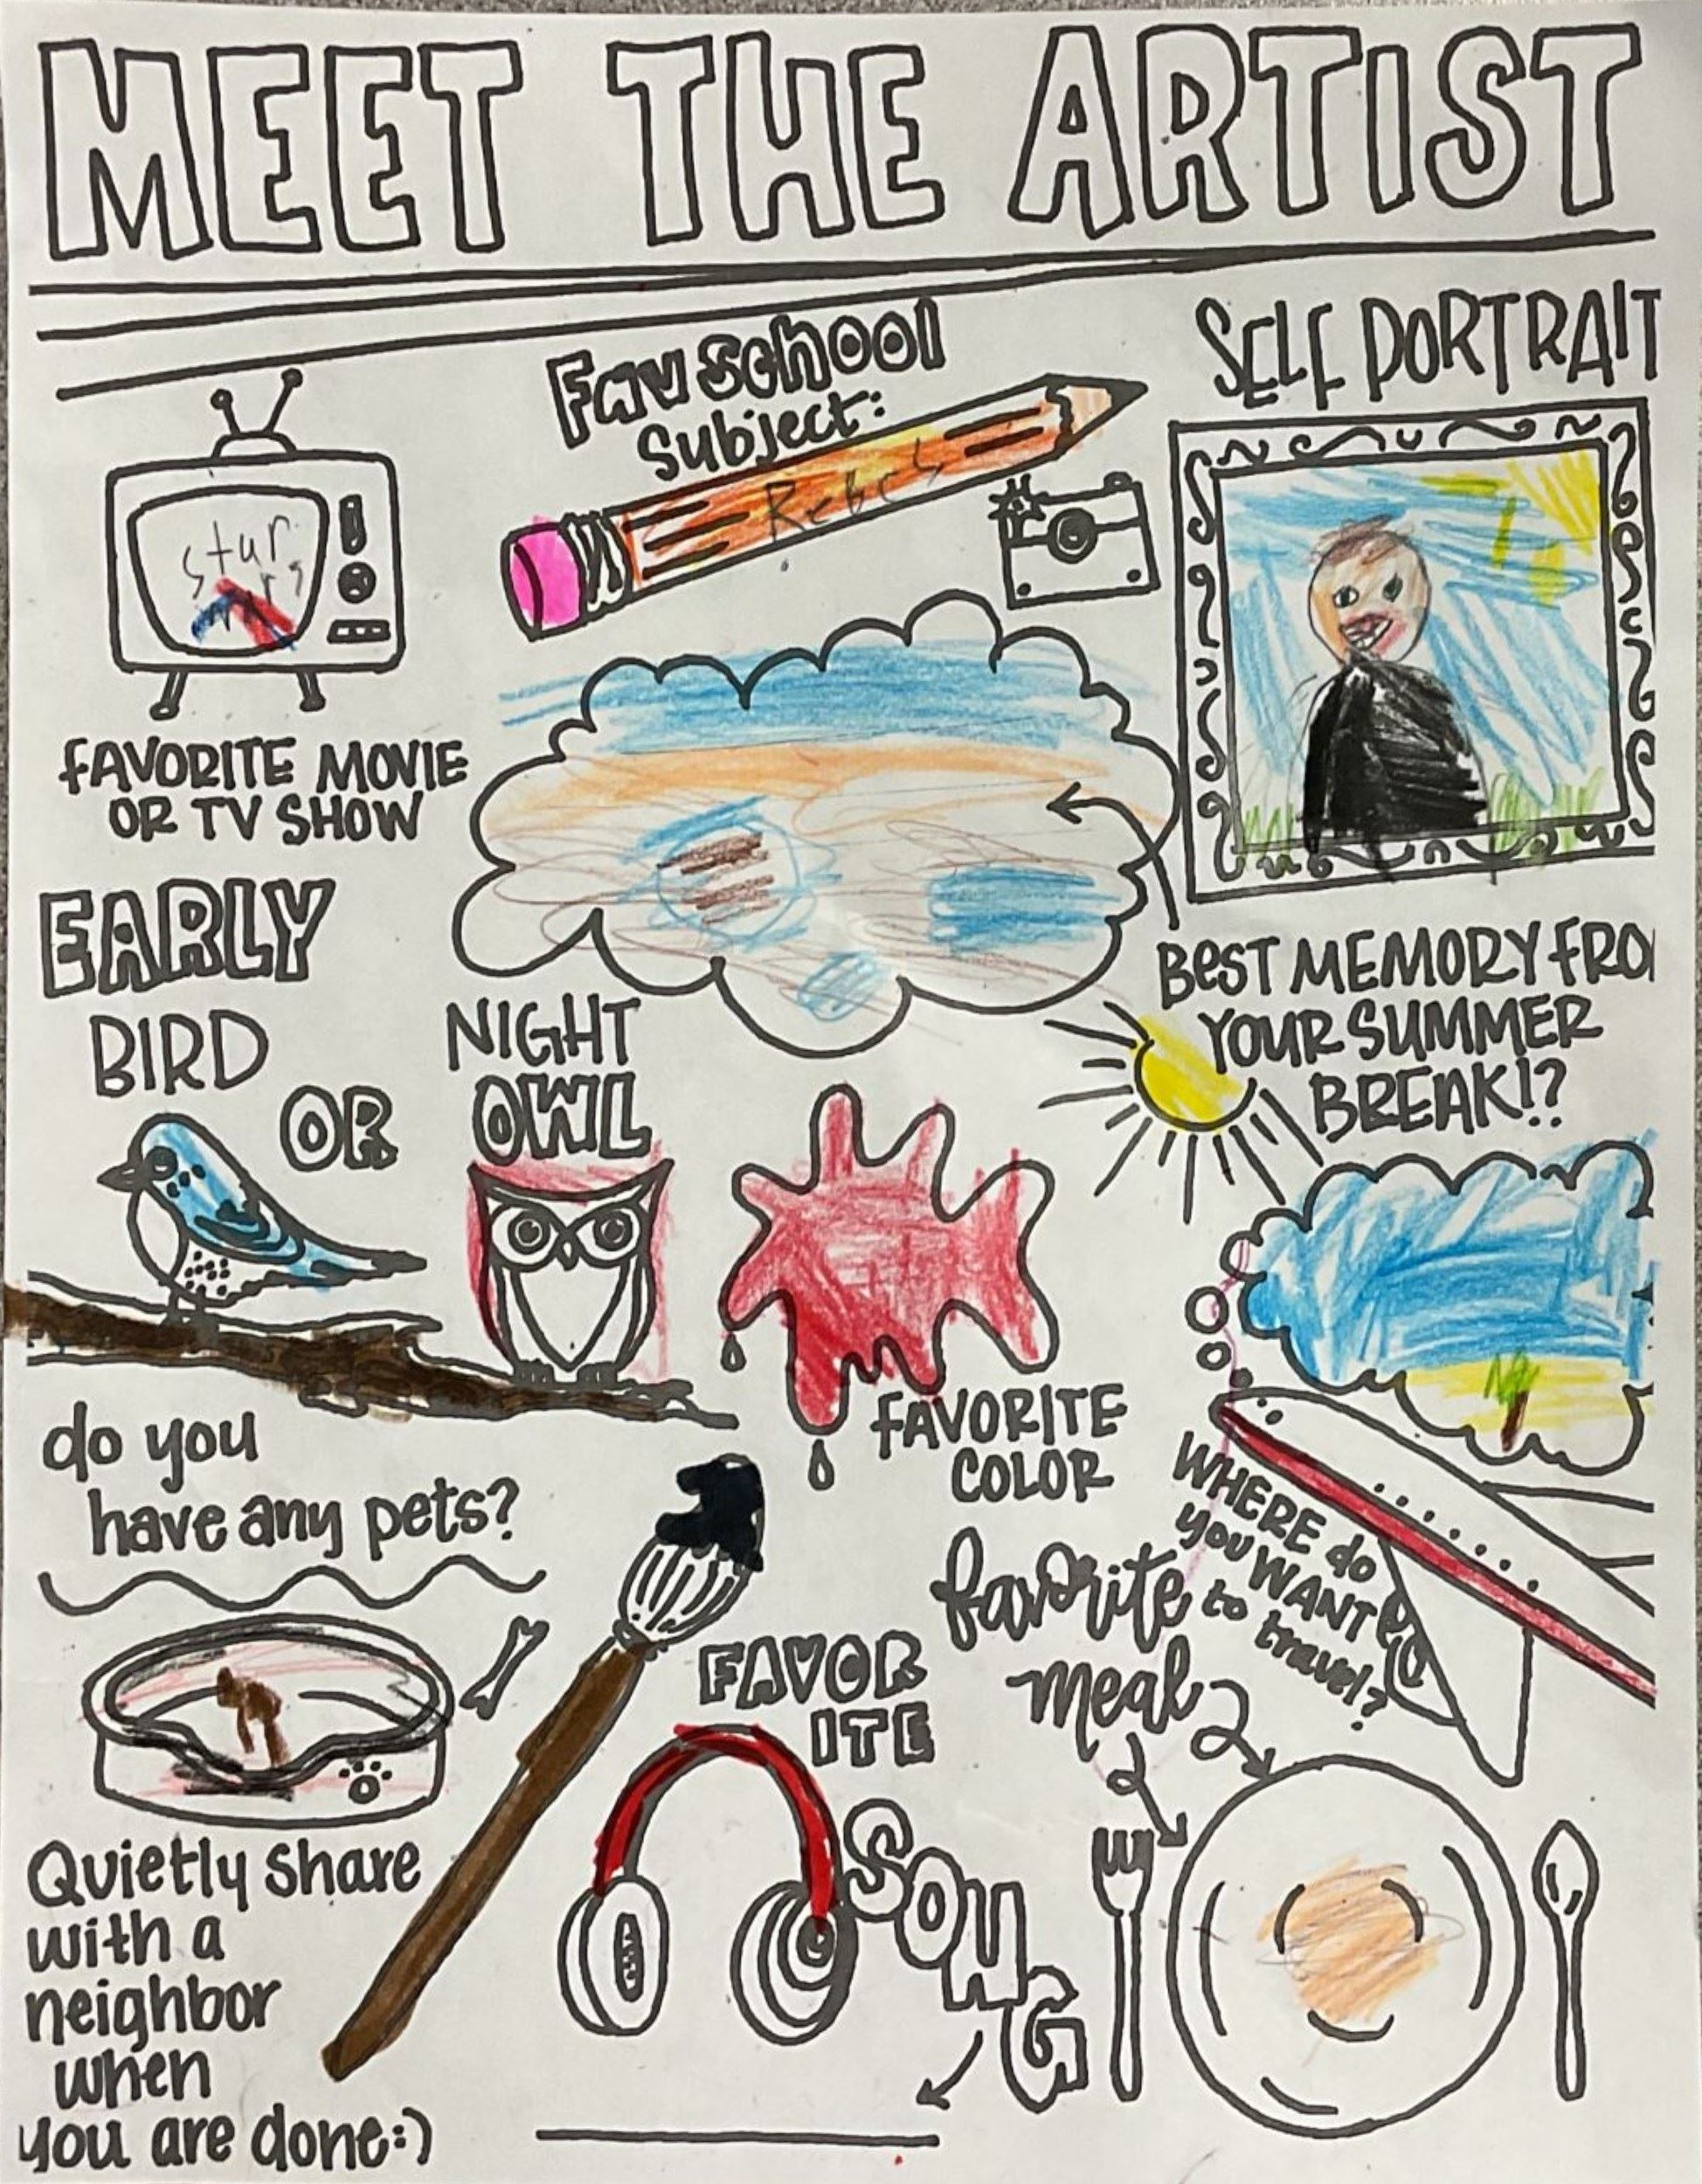 MEET THE ARTIST
Fav School
Subject:
SELF PORTRAIT
star
FAVORITE MOVIE
OR TV SHOW
EARLY
BIRD
OR
NIGHT
OWL
BEST MEMORY FRO
YOUR SUMMER
BREAK!?
FAVORITE
COLOR
do you
have any pets?
WHERE do
you WANT
to
travel?
favorite
meal
FAVOR
ITE
SONG
Quietly share
with a
neighbor
when
you are done:)